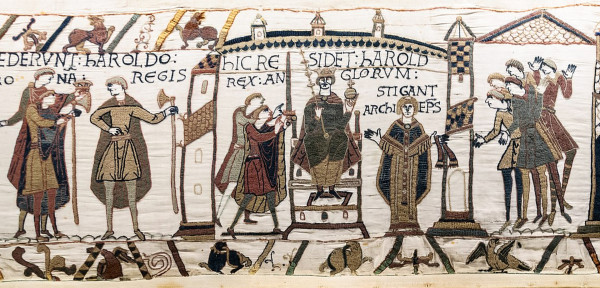 EDERVNT: hAROLDO:
RO NA: REGIS
hIC RE SIDET: hAROLD
REX: AN GLORVM:
STIGANT
ARChI EPS